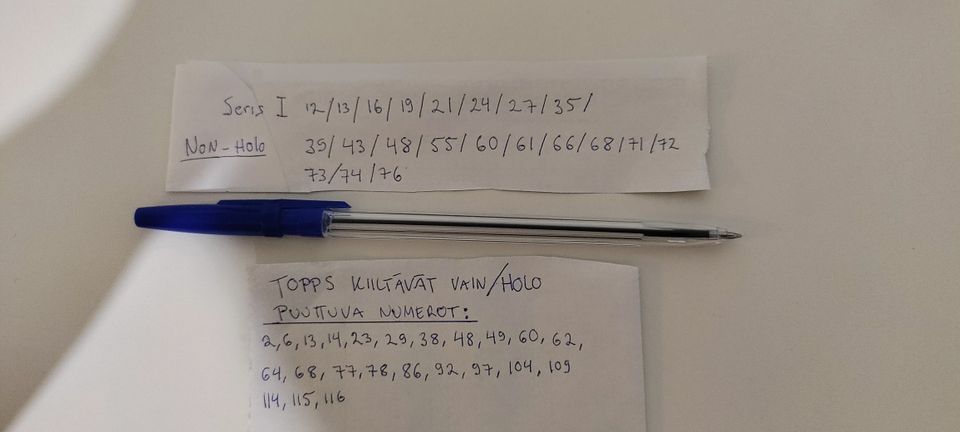 Seris I 12/13/16/19/21/24/27/35/
NON-HOLO 39/43/48/55/60/61/66/68/71/72
73/74/76
TOPPS KIILTÄVÄT VAIN/HOLO
PUUTTUVA NUMEROT:
2,6,13,14,23,29,38,48,49,60,62,
64,68,77,78,86,92,97,104,109
114,115,116